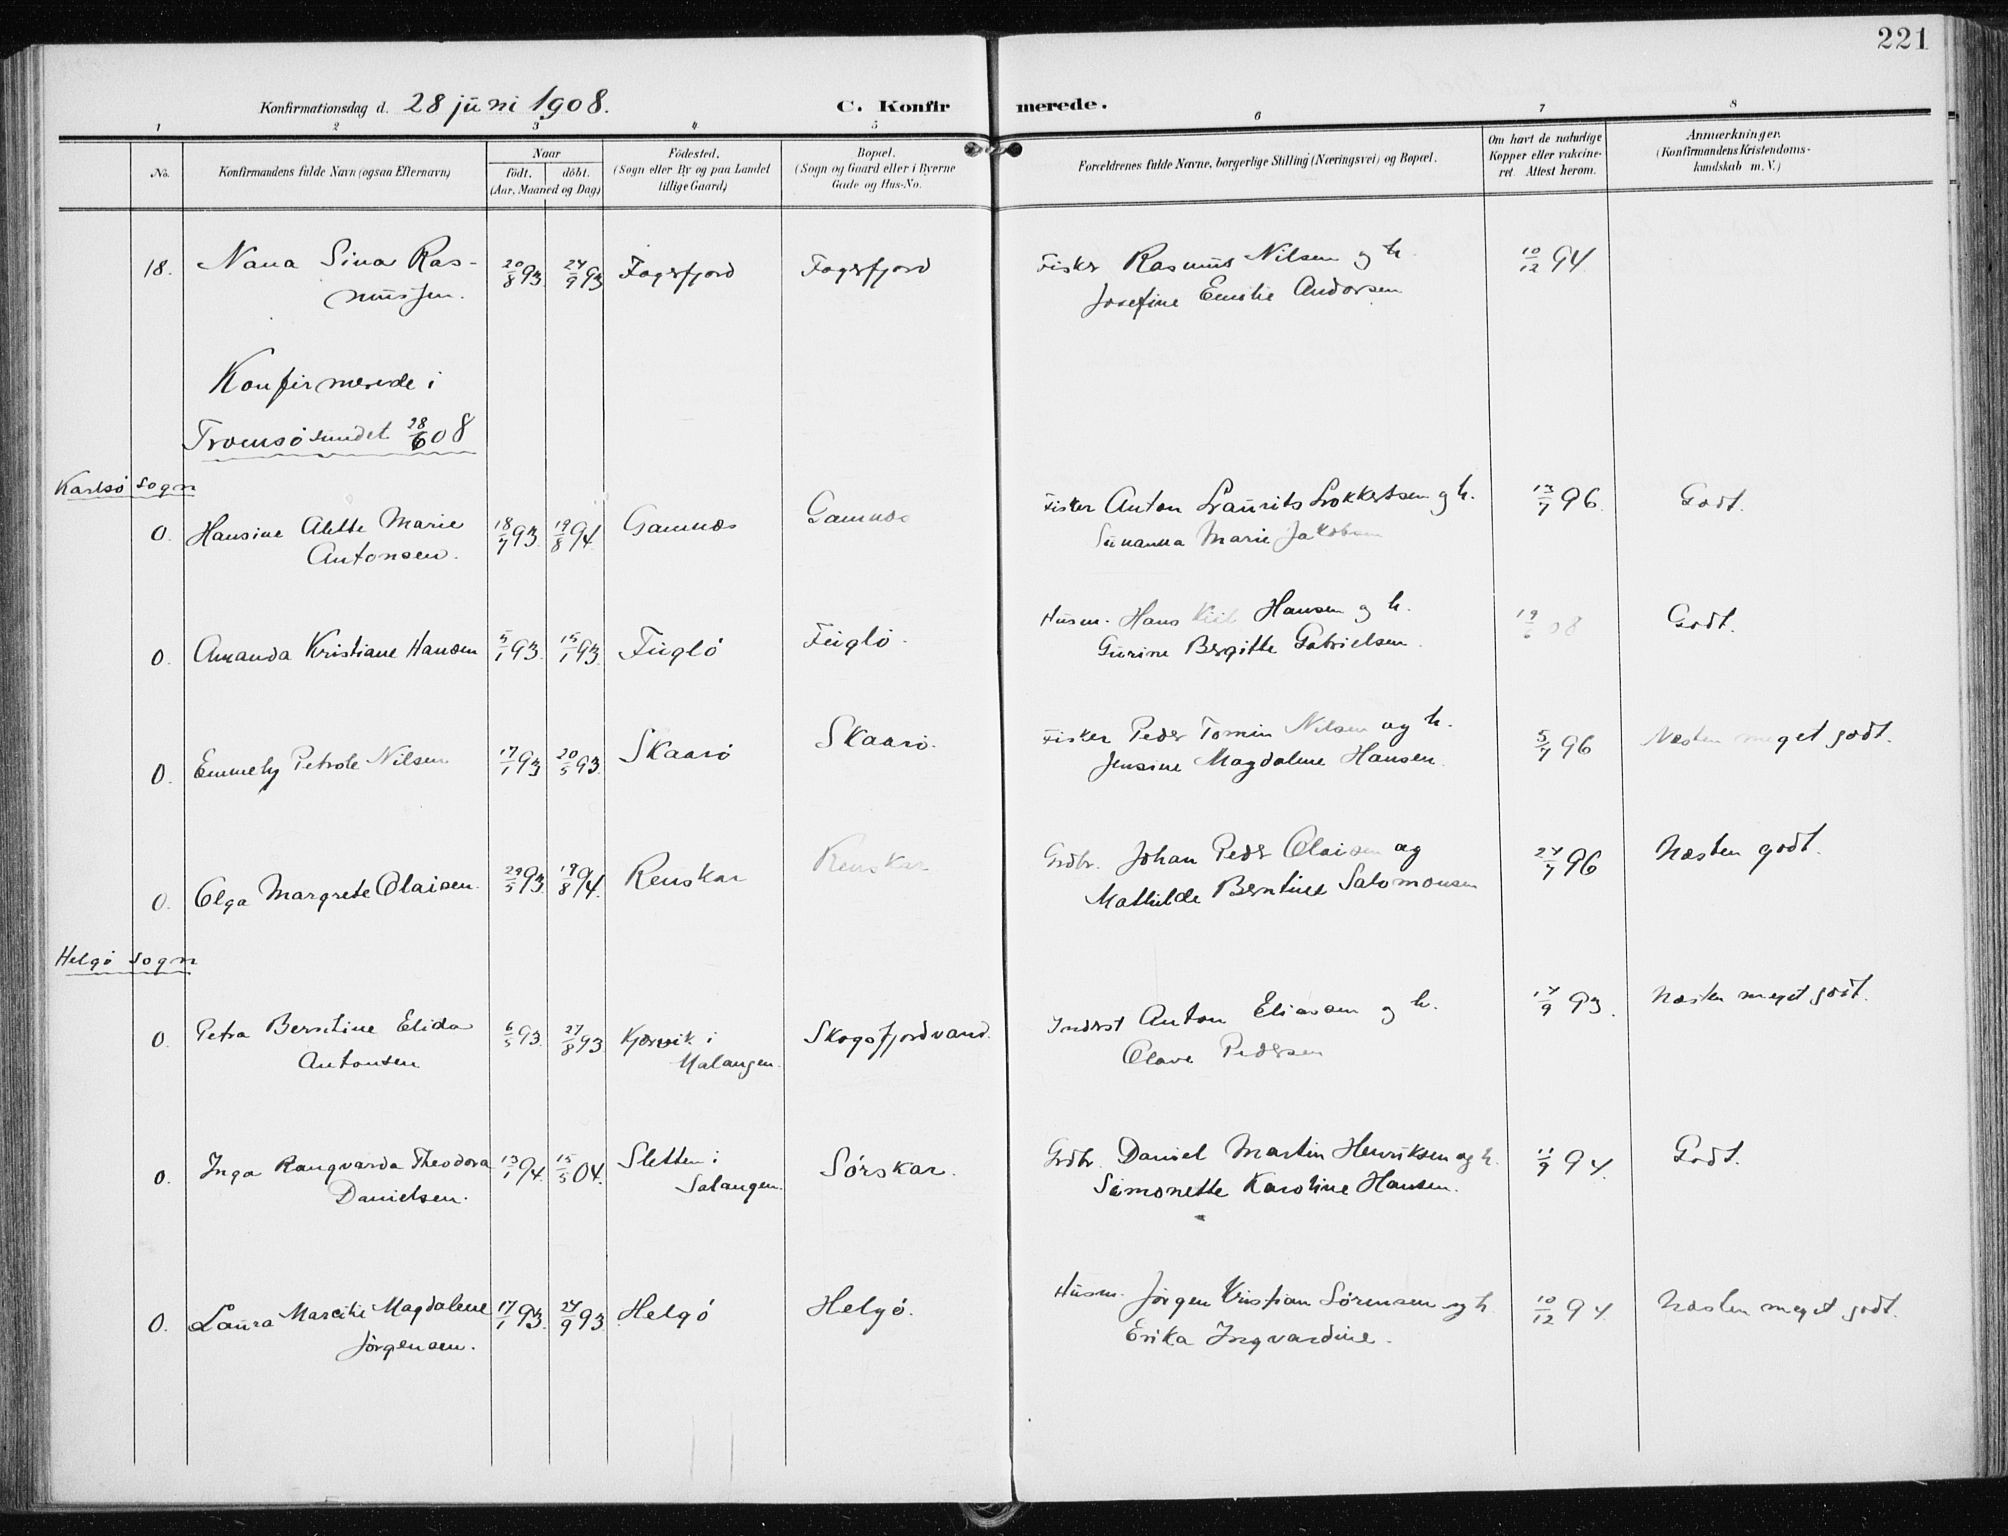 221
Konfirmationsdag d. 28 juni 1908.
C. Konfirmerede.
1 2 3 4 5 6 7 8
No. Konfirmandens fulde Navn (ogsaa Efternavn) Naar födt. döbt. (Aar, Maaned og Dag) Födested. (Sogn eller By og paa Landet tillige Gaard) Bopæl. (Sogn og Gaard eller i Byerne Gade og Hus-No. Forældrenes fulde Navne, borgerlige Stilling (Næringsvei) og Bopæl. Om havt de naturlige Kopper eller vakcineret. Attest herom. Anmærkninger. (Konfirmandens Kristendomskundskab m. V.)
18. Nana Sina Ras- 20/8 93 24/9 93 Fagerfjord Fagerfjord Fisker Rasmus Nilsen og h. 10/12 94
mussen. Josefine Emilie Andorsen
Konfirmerede i
Tromsösundet 28/6 08
Karlsö Sogn
0. Hansine Alette Marie 18/7 93. 19/8 94. Gamnæs Gamnæs Fisker Anton Laurits Lokkertsen og h. 13/7 96. Godt.
Antonsen. Susanna Marie Jakobsen
0. Amanda Kristiane Hansen 5/1 93. 15/1 93. Fuglö Fuglö. Husm. Hans Kiil Hansen og h. 19/6 08 Godt.
Gurine Bergitte Gabrielsen.
0. Emmely Petrole Nilsen 17/1 93 20/5 93. Skaarö Skaarö. Fisker Peder Tomin Nilsen og h. 5/7 96 Næsten meget godt.
Jensine Magdalene Hansen.
0. Olga Margrete Olaisen. 29/5 93. 19/8 94. Renskar Renskar Grdbr. Johan Peder Olaisen og 24/7 96 Næsten godt.
Mathilde Berntine Salomonsen
Helgö Sogn
0. Petra Berntine Elida 6/5 93. 27/8 93 Kjervik i Skogsfjordvand. Inderst Anton Eliassen og h. 17/9 93. Næsten meget godt.
Antonsen Malangen. Olave Pedersen
0. Inga Rangvarda Theodora 13/1 94. 15/5 04. Sletten i Sörskar. Grdbr. Daniel Martin Henriksen og h. 11/9 94. Godt.
Danielsen. Salangen. Simonette Karoline Hansen.
0. Laura Marcilie Magdalene 17/1 93. 24/9 93 Helgö Helgö. Husm. Jörgen Kristian Sörensen og h. 10/12 94. Næsten meget godt.
Jörgensen. Erika Ingvardine.